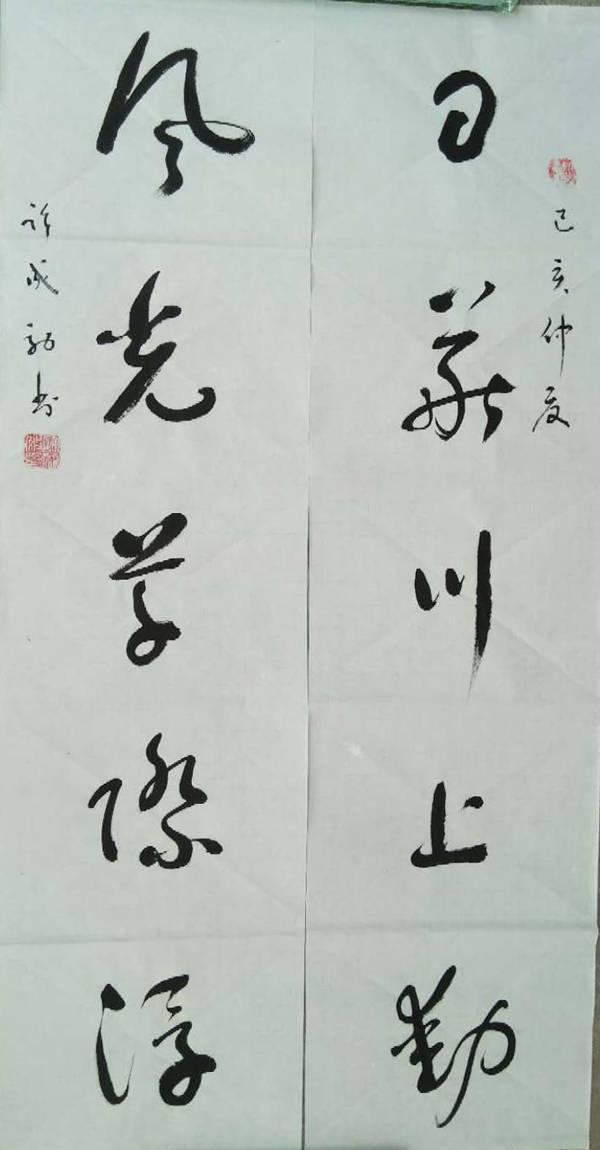 己亥仲夏
日華川上動
風光草際浮
許成書